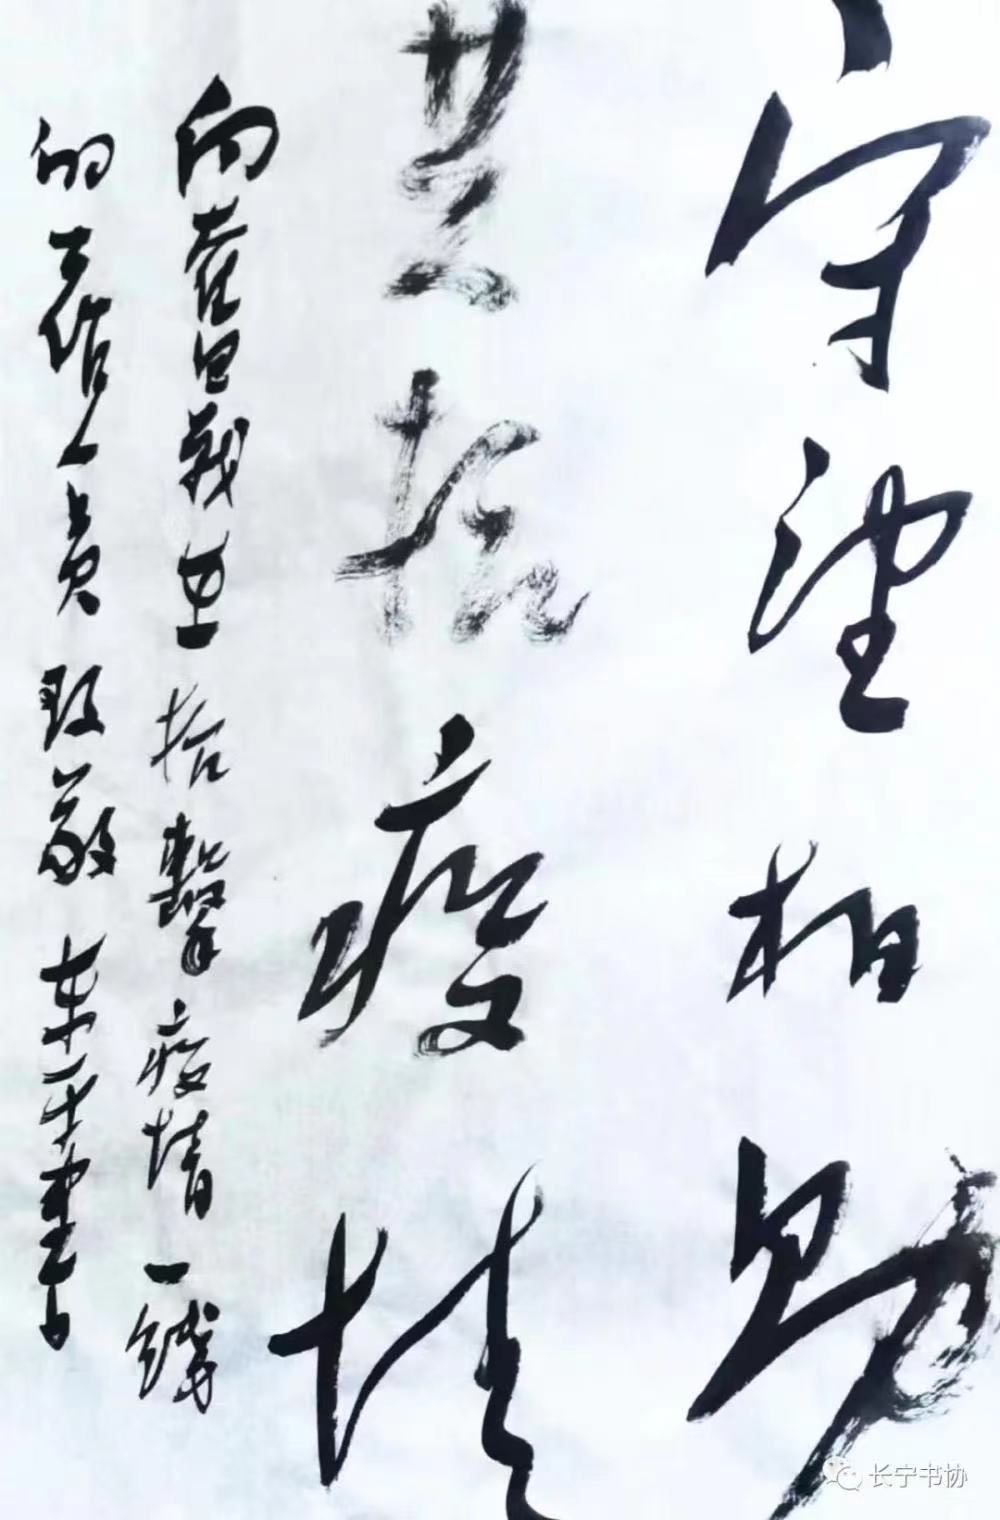 守望相助
共抗疫情
向在日战在抗击疫情一线
的工作人员致敬
长宁书协